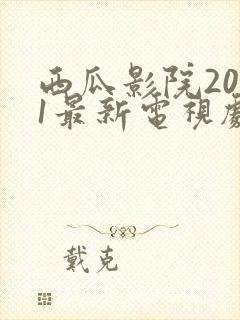 西瓜影院20
1最新電視劇
戴克